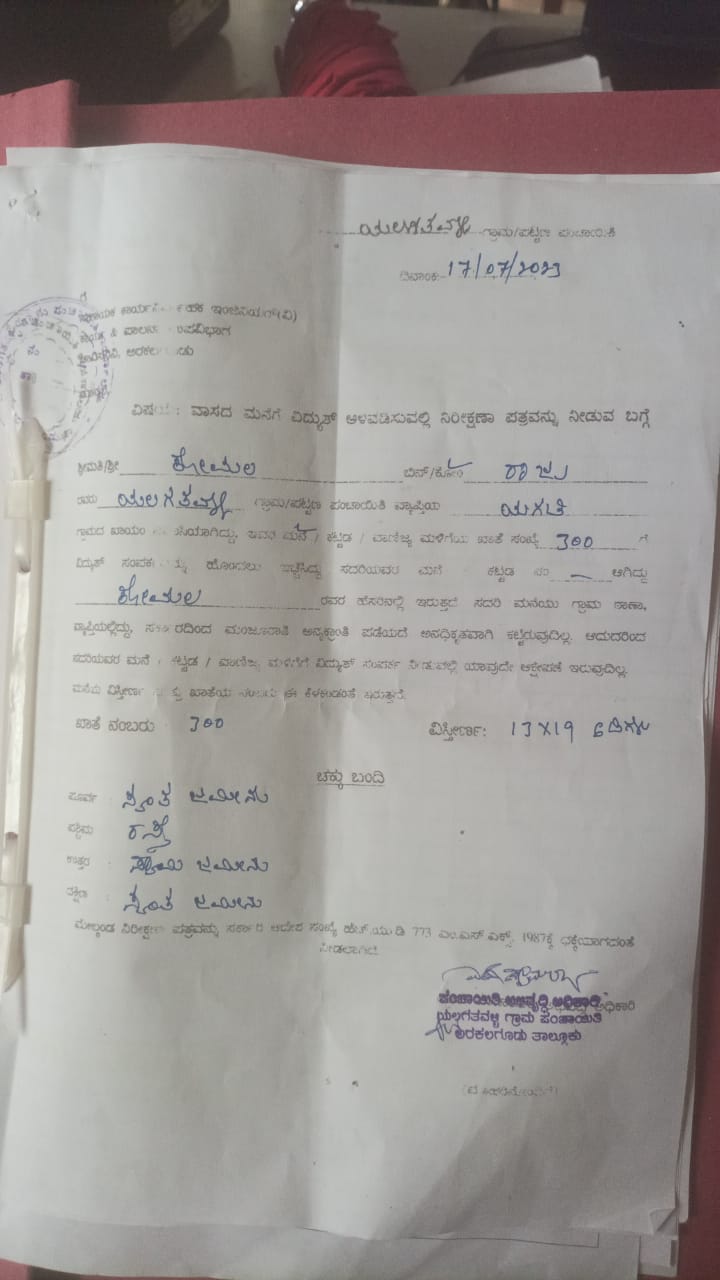 ಯಲಗತವಳ್ಳಿ ಗ್ರಾಮ/ಪಟ್ಟಣ ಪಂಚಾಯಿತಿ
ದಿನಾಂಕ: 17/07/2023
ಕಾರ್ಯನಿರ್ವಾಹಕ ಇಂಜಿನಿಯರ್(ವಿ)
& ಪಾಲನ ಉಪವಿಭಾಗ
ಅರಕಲಗೂಡು
ವಿಷಯ : ವಾಸದ ಮನೆಗೆ ವಿದ್ಯುತ್ ಅಳವಡಿಸುವಲ್ಲಿ ನಿರೀಕ್ಷಣಾ ಪತ್ರವನ್ನು ನೀಡುವ ಬಗ್ಗೆ
ಶ್ರೀಮತಿ/ಶ್ರೀ ಕೋಮಲ ಬಿನ್/ಕೋಂ ರಾಜು
ರವರು ಯಲಗತವಳ್ಳಿ ಗ್ರಾಮ/ಪಟ್ಟಣ ಪಂಚಾಯಿತಿ ವ್ಯಾಪ್ತಿಯ ಯಗಟಿ
ಗ್ರಾಮದ ಖಾಯಂ ಇವರ ಮನೆ / ಕಟ್ಟಡ / ವಾಣಿಜ್ಯ ಮಳಿಗೆಯ ಖಾತೆ ಸಂಖ್ಯೆ 300 ಗೆ
ವಿದ್ಯುತ್ ಸಂಪರ್ಕ ಹೊಂದಲು ಇಚ್ಛಿಸಿದ್ದು ಸದರಿಯವರ ಮನೆ ಕಟ್ಟಡ ನಂ ಆಗಿದ್ದು
ಕೋಮಲ ರವರ ಹೆಸರಿನಲ್ಲಿ ಇರುತ್ತದೆ ಸದರಿ ಮನೆಯು ಗ್ರಾಮ ಠಾಣಾ,
ವ್ಯಾಪ್ತಿಯಲ್ಲಿದ್ದು, ಸರ್ಕಾರದಿಂದ ಮಂಜೂರಾತಿ ಅನ್ಯಕ್ರಾಂತಿ ಪಡೆಯದೆ ಅನಧಿಕೃತವಾಗಿ ಕಟ್ಟಿರುವುದಿಲ್ಲ. ಆದುದರಿಂದ
ಸದರಿಯವರ ಮನೆ / ಕಟ್ಟಡ / ವಾಣಿಜ್ಯ ಮಳಿಗೆಗೆ ವಿದ್ಯುತ್ ಸಂಪರ್ಕ ನೀಡುವಲ್ಲಿ ಯಾವುದೇ ಆಕ್ಷೇಪಣೆ ಇರುವುದಿಲ್ಲ.
ಮನೆಯ ವಿಸ್ತೀರ್ಣ ಖಾತೆಯ ನಂಬರು ಈ ಕೆಳಕಂಡಂತೆ ಇರುತ್ತದೆ.
ಖಾತೆ ನಂಬರು : 300 ವಿಸ್ತೀರ್ಣ: 13 X 19 ಅಡಿಗಳು
ಚಕ್ಕು ಬಂದಿ
ಪೂರ್ವ : ಸ್ವಂತ ಜಮೀನು
ಪಶ್ಚಿಮ : ರಸ್ತೆ
ಉತ್ತರ : ಸ್ವಾಮಿ ಜಮೀನು
ದಕ್ಷಿಣ : ಸ್ವಂತ ಜಮೀನು
ಮೇಲ್ಕಂಡ ನಿರೀಕ್ಷಣಾ ಪತ್ರವನ್ನು ಸರ್ಕಾರಿ ಆದೇಶ ಸಂಖ್ಯೆ ಹೆಚ್.ಯು.ಡಿ 773 ಎಂ.ಎನ್ ಎಕ್ಸ್. 1987ಕ್ಕೆ ಧಕ್ಕೆಯಾಗದಂತೆ
ನೀಡಲಾಗಿದೆ
ಪಂಚಾಯಿತಿ ಅಭಿವೃದ್ಧಿ ಅಧಿಕಾರಿ
ಯಲಗತವಳ್ಳಿ ಗ್ರಾಮ ಪಂಚಾಯಿತಿ
ಅರಕಲಗೂಡು ತಾಲ್ಲೂಕು